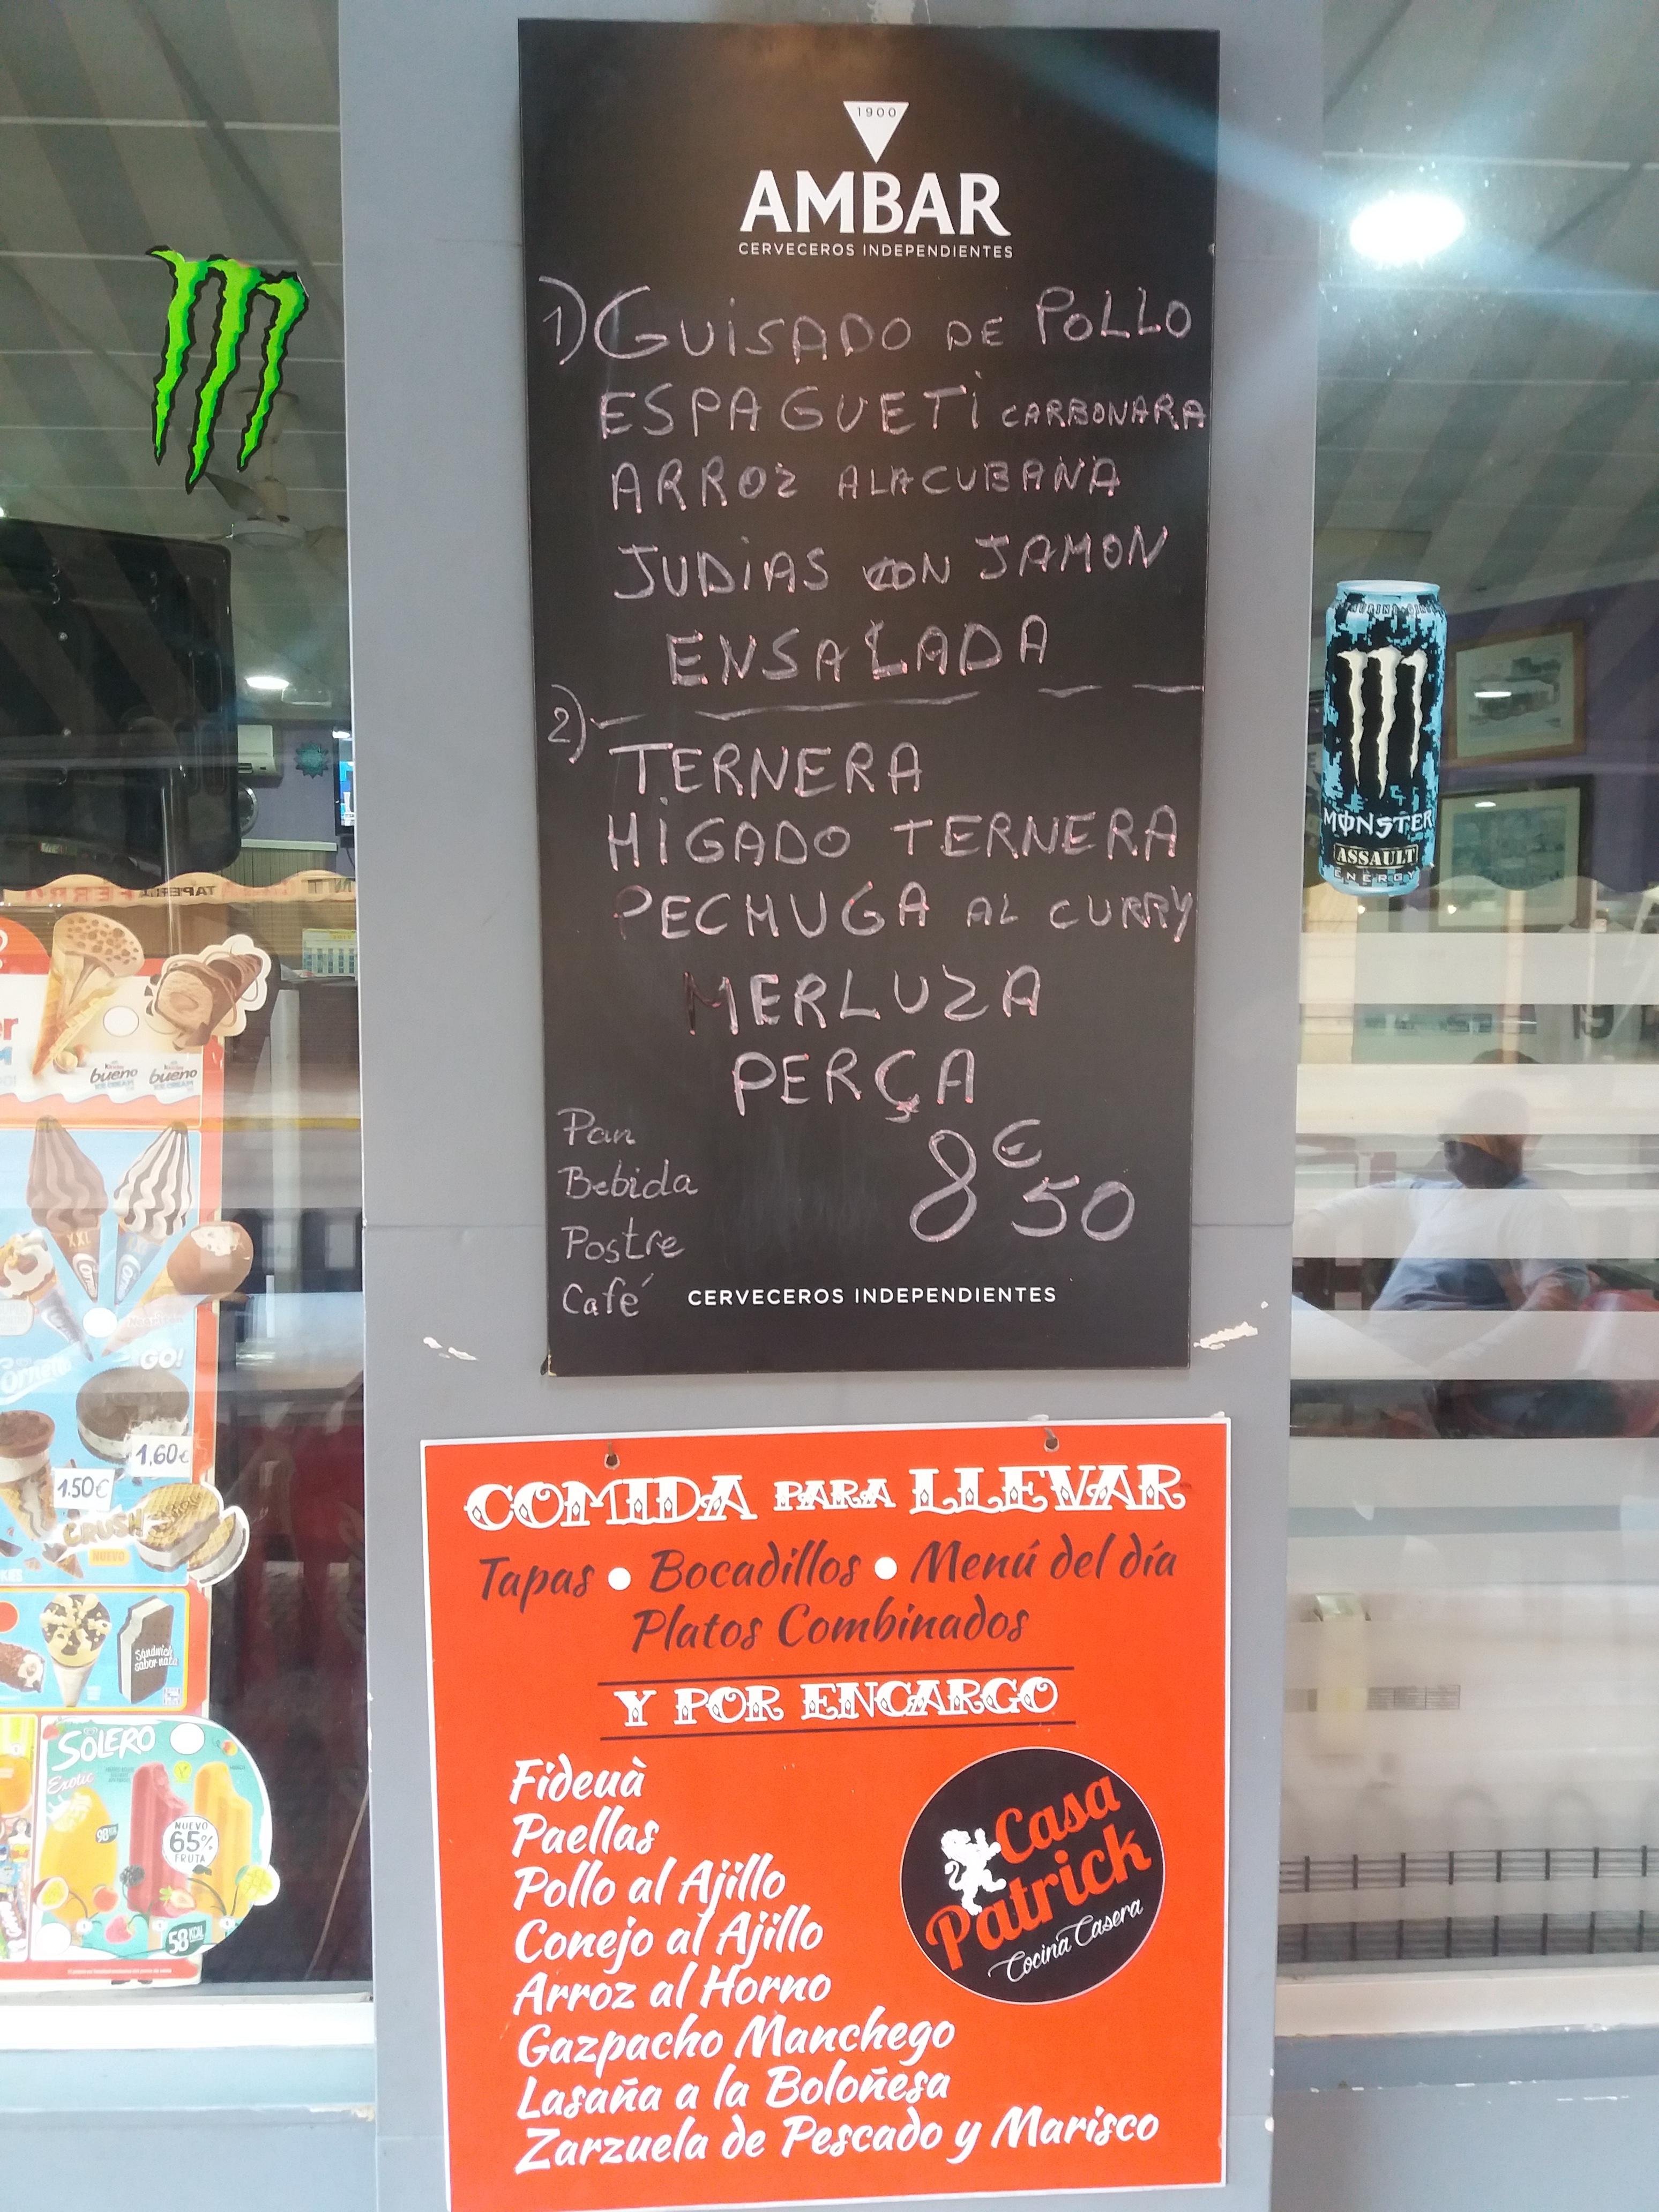 1900
AMBAR
CERVECEROS INDEPENDIENTES
1) GUISADO DE POLLO
ESPAGUETI CARBONARA
ARROZ A LA CUBANA
JUDIAS CON JAMON
ENSALADA
2)
TERNERA
HIGADO TERNERA
PECHUGA AL CURRY
MERLUZA
PERÇA
Pan
Bebida
Postre
Café
8€50
CERVECEROS INDEPENDIENTES
COMIDA PARA LLEVAR
Tapas • Bocadillos • Menú del día
Platos Combinados
Y POR ENCARGO
Fideuà
Paellas
Pollo al Ajillo
Conejo al Ajillo
Arroz al Horno
Gazpacho Manchego
Lasaña a la Boloñesa
Zarzuela de Pescado y Marisco
Casa
Patrick
Cocina Casera
MONSTER
ASSAULT
ENERGY
bueno
bueno
XXL
GO!
1,60€
1.50€
CRUSH
NUEVO
Sandwich
sabor nata
SOLERO
Exotic
NUEVO
65%
FRUTA
58 KCAL